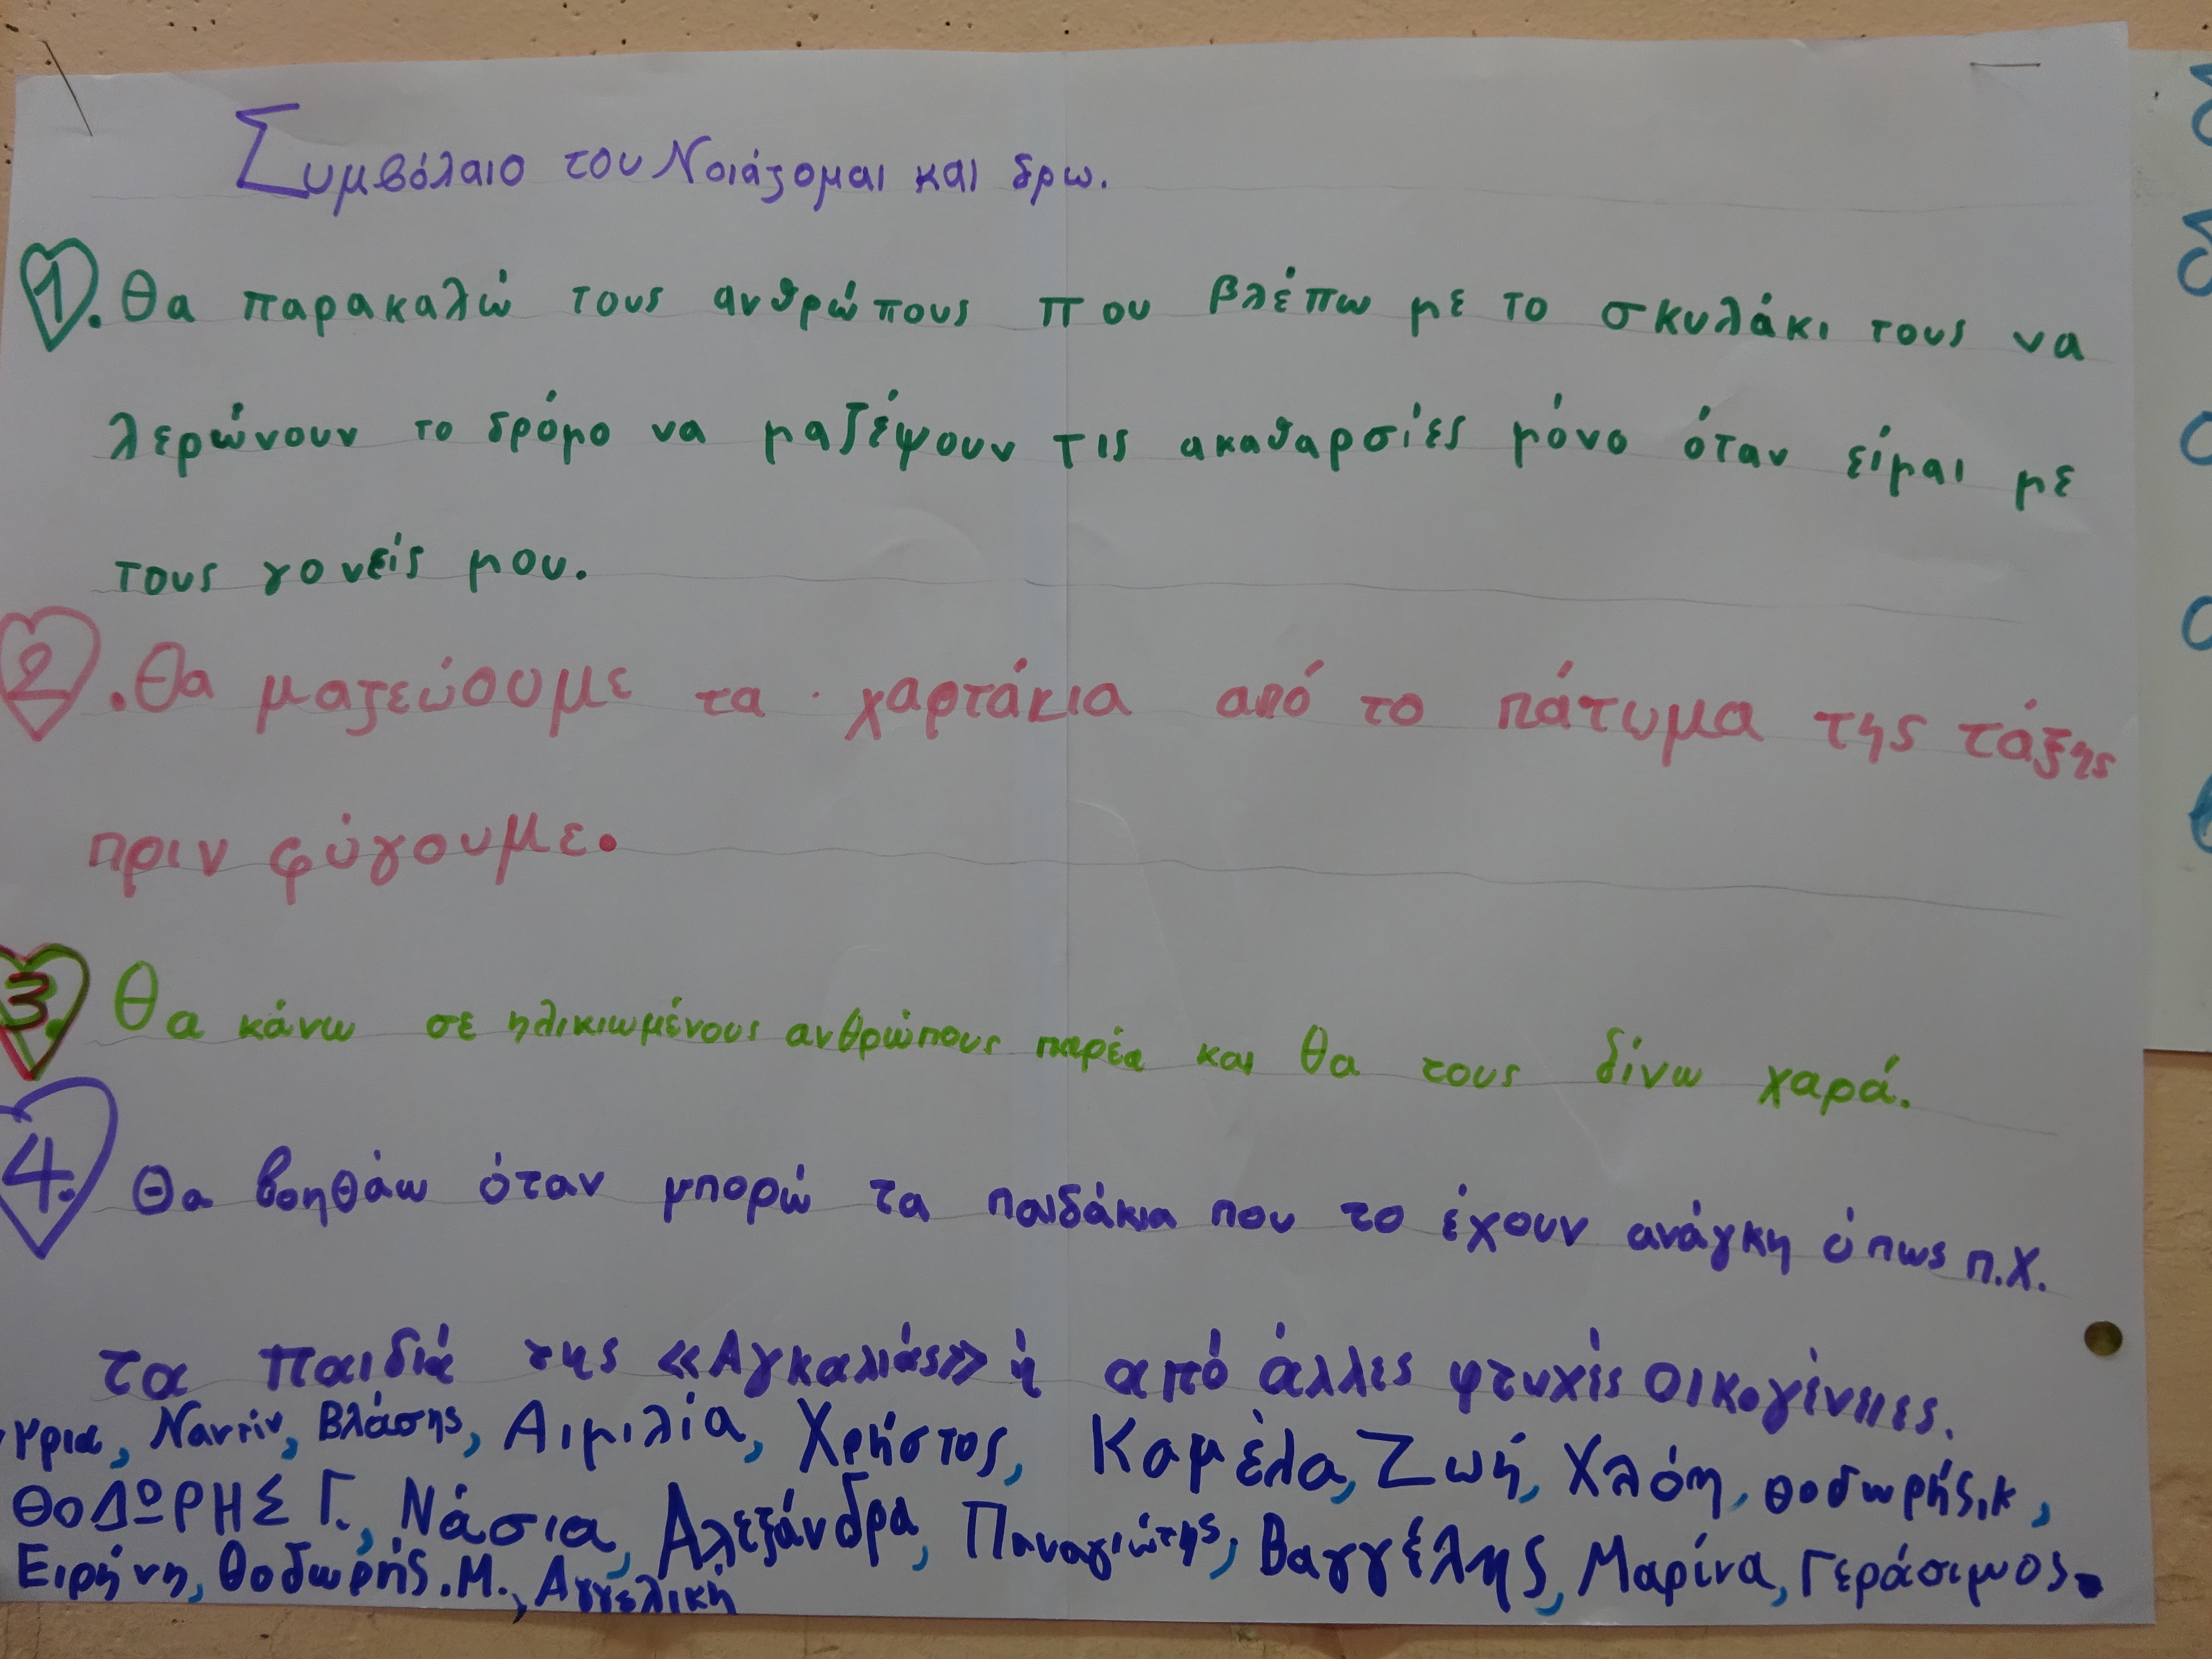 Συμβόλαιο του Νοιάζομαι και δρω.
1. Θα παρακαλώ τους ανθρώπους που βλέπω με το σκυλάκι τους να
λερώνουν το δρόμο να μαζέψουν τις ακαθαρσίες μόνο όταν είμαι με
τους γονείς μου.
2. Θα μαζεύουμε τα χαρτάκια από το πάτωμα της τάξης
πριν φύγουμε.
3. Θα κάνω σε ηλικιωμένους ανθρώπους παρέα και θα τους δίνω χαρά.
4. Θα βοηθάω όταν μπορώ τα παιδάκια που το έχουν ανάγκη όπως π.χ.
τα παιδιά της «Αγκαλιάς» ή από άλλες φτυχές οικογένειες.
Ναντίν, Βλάσης, Αιμιλία, Χρήστος, Καμέλα, Ζωή, Χλόη, Θοδωρής.κ,
ΘΟΔΩΡΗΣ Γ., Νάσια, Αλεξάνδρα, Παναγιώτης, Βαγγέλης, Μαρίνα, Γεράσιμος.
Ειρήνη, Θοδωρής.Μ., Αγγελική